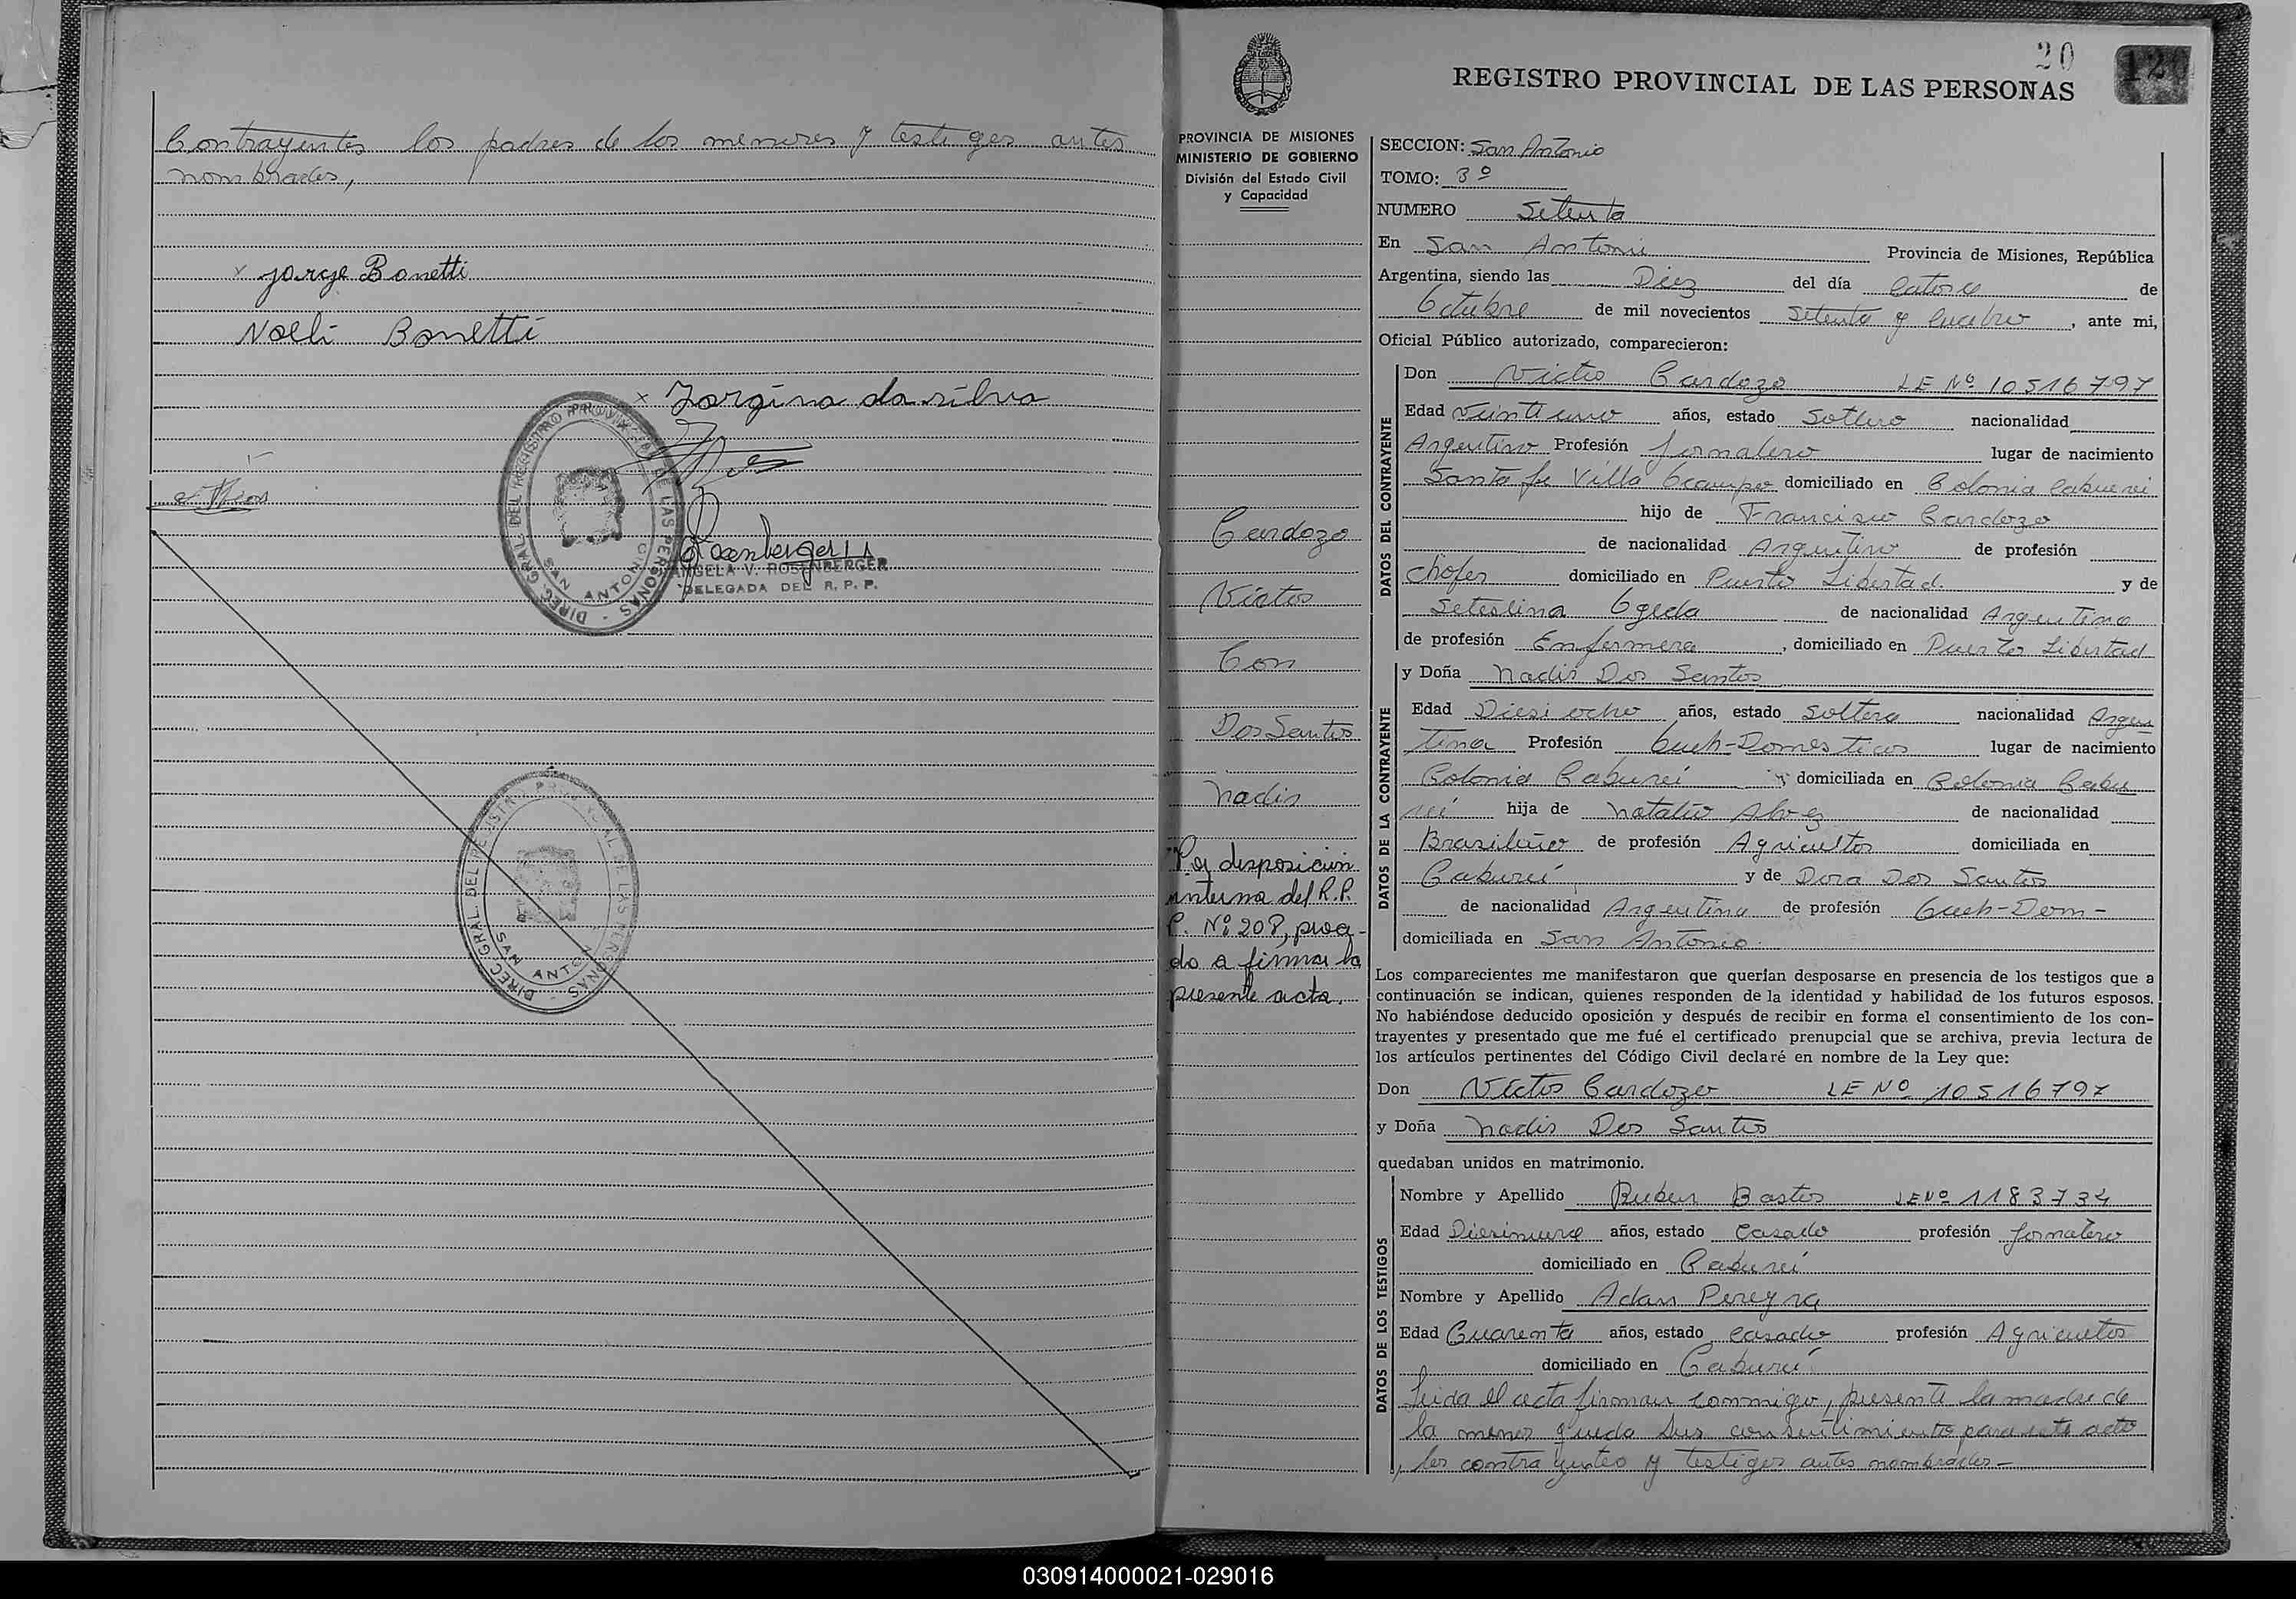 Contrayentes los padres de los menores y testigos antes
nombrados,
x Jorge Bonetti
Noeli Bonetti
x Jorgina da silva
DIREC. GRAL. DEL REGISTRO PROVINCIAL DE LAS PERSONAS - SAN ANTONIO
Rosenberger
ANGELA V. ROSENBERGER
DELEGADA DEL R. P. P.
DIREC. GRAL. DEL REGISTRO PROVINCIAL DE LAS PERSONAS - SAN ANTONIO
20
120
REGISTRO PROVINCIAL DE LAS PERSONAS
PROVINCIA DE MISIONES
MINISTERIO DE GOBIERNO
División del Estado Civil
y Capacidad
Cardozo
Victor
Con
Dos Santos
Nadis
Por disposicion
interna del R.P.
P. Nº 208, proce-
do a firmar la
presente acta.
SECCION: San Antonio
TOMO: 3º
NUMERO Setenta
En San Antonio Provincia de Misiones, República
Argentina, siendo las Diez del día Catorce de
Octubre de mil novecientos Setenta y cuatro, ante mi,
Oficial Público autorizado, comparecieron:
DATOS DEL CONTRAYENTE
Don Victor Cardozo LE Nº 10516797
Edad Veintiuno años, estado Soltero nacionalidad
Argentino Profesión Jornalero lugar de nacimiento
Santa fe Villa Ocampo domiciliado en Colonia Caburei
hijo de Francisco Cardozo
de nacionalidad Argentino de profesión
Chofer domiciliado en Puerto Libertad y de
Seteslina Ojeda de nacionalidad Argentina
de profesión Enfermera, domiciliado en Puerto Libertad
DATOS DE LA CONTRAYENTE
y Doña Nadis Dos Santos
Edad Diesi ocho años, estado Soltera nacionalidad Argen
tina Profesión Queh-Domesticos lugar de nacimiento
Colonia Caburei domiciliada en Colonia Cabu
rei hija de Natalio Alvez de nacionalidad
Brasileño de profesión Agricultor domiciliada en
Caburei y de Dora Dos Santos
de nacionalidad Argentina de profesión Queh-Dom-
domiciliada en San Antonio.
Los comparecientes me manifestaron que querían desposarse en presencia de los testigos que a
continuación se indican, quienes responden de la identidad y habilidad de los futuros esposos.
No habiéndose deducido oposición y después de recibir en forma el consentimiento de los con-
trayentes y presentado que me fué el certificado prenupcial que se archiva, previa lectura de
los artículos pertinentes del Código Civil declaré en nombre de la Ley que:
Don Victor Cardozo LE Nº 10516797
y Doña Nadis Dos Santos
quedaban unidos en matrimonio.
DATOS DE LOS TESTIGOS
Nombre y Apellido Ruben Bastos LE Nº 1183734
Edad Diesinueve años, estado Casado profesión Jornalero
domiciliado en Caburei
Nombre y Apellido Adan Pereyra
Edad Cuarenta años, estado casado profesión Agricultor
domiciliado en Caburei
Leida el acta firman conmigo, presente la madre de
la menor queda sus consentimiento para este acto
, los contrayentes y testigos antes nombrados-
030914000021-029016